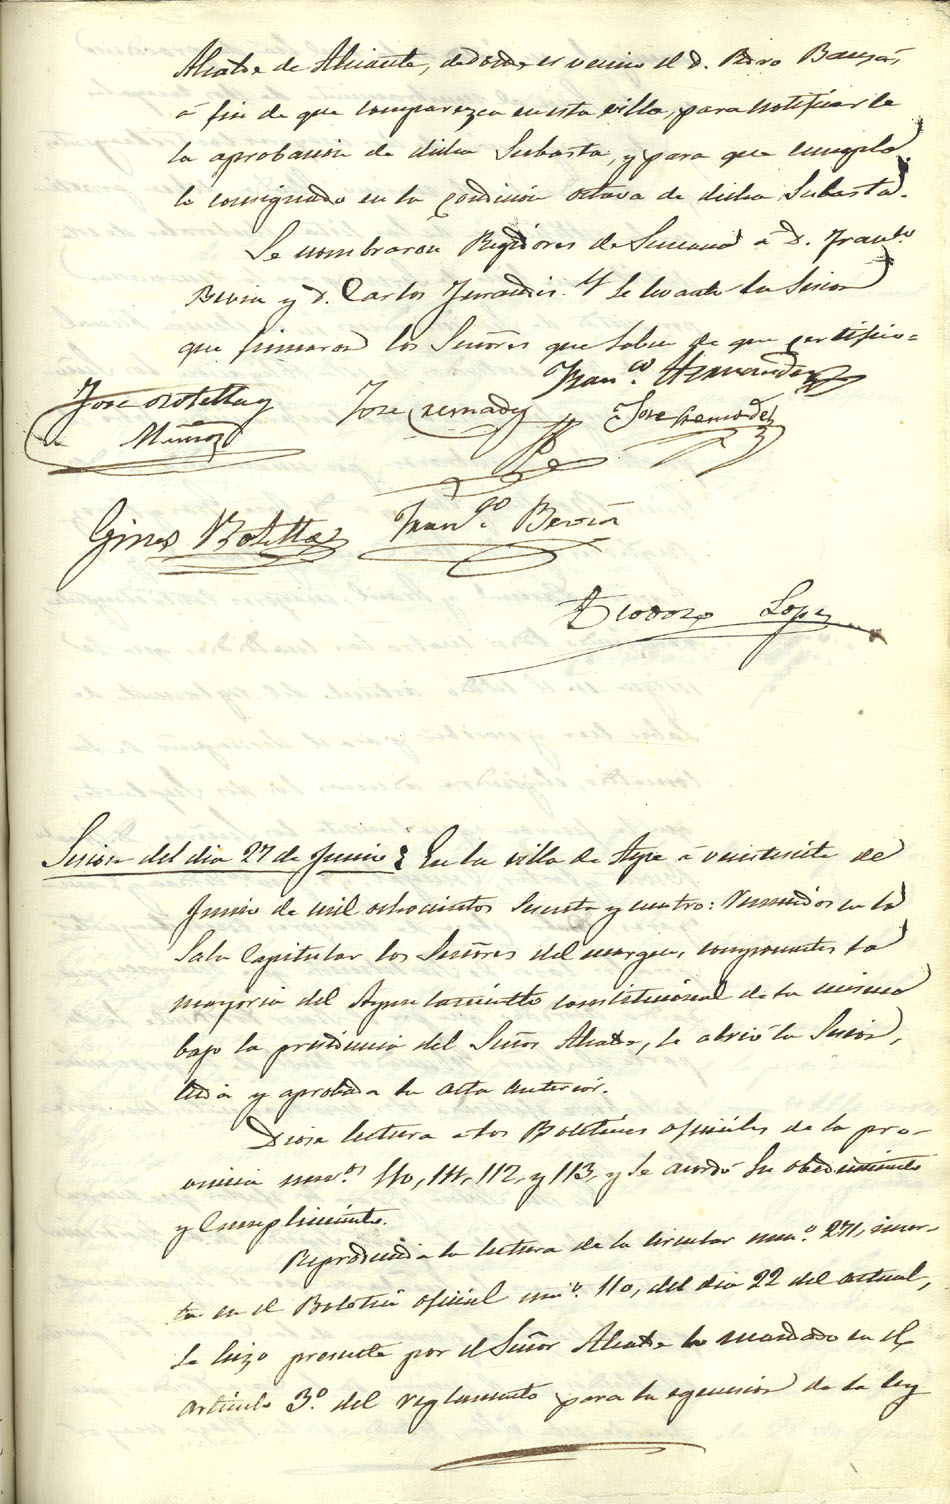 Alcalde de Alicante, de donde es vecino el d. Pedro Bauzá,
á fin de que comparezca en esta villa, para notificarle
la aprobacion de dicha Subasta, y para que cumpla
lo consignado en la condicion octava de dicha Subasta.
Se nombraron Regidores de Semana á D. Fran.co
Beviá y D. Carlos Y se levantó la Sesion
que firmaron los Señores que saben de que certifico=
Fran.co Hernandez
Jose Botella y
Muñoz
Jose Cremades
Jose Cremades
Gines Botella
Fran.co Beviá
Teodoro Lopez
Sesion del dia 27 de Junio; En la villa de Aspe á veintesiete de
Junio de mil ochocientos sesenta y cuatro: Reunidos en la
Sala Capitular los Señores del margen, componentes la
mayoria del Ayuntamiento constitucional de la misma
bajo la presidencia del Señor Alcalde, se abrió la Sesion,
leida y aprobada la acta anterior.
Diose lectura a los Boletines oficiales de la pro-
vincia num.os 110, 111, 112, y 113, y se acordó su obedecimiento
y Cumplimiento.
Reproducida la lectura de la circular num.o 271, incer-
ta en el Boletin oficial num.o 110, del dia 22 del actual,
se hizo presente por el Señor Alcalde lo mandado en el
artículo 3.o del reglamento para la egecusion de la ley